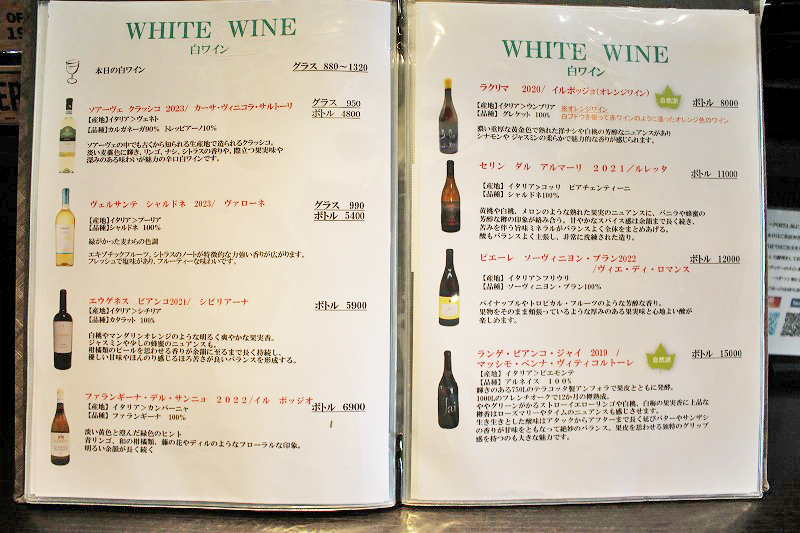 WHITE WINE
白ワイン
本日の白ワイン
グラス 880〜1320
ソアーヴェ クラッシコ 2023/ カーサ・ヴィニコラ・サルトーリ
グラス 950
ボトル 4800
【産地】イタリア>ヴェネト
【品種】ガルガネーガ90% トレッビアーノ10%
ソアーヴェの中でも古くから知られる生産地で造られるクラッシコ。
淡い麦藁色に輝き、リンゴ、ナシ、シトラスの香りや、際立つ果実味や
深みのある味わいが魅力の辛口白ワインです。
ヴェルサンテ シャルドネ 2023/ ヴァローネ
グラス 990
ボトル 5400
【産地】イタリア>プーリア
【品種】シャルドネ 100%
緑がかった麦わらの色調
エキゾチックフルーツ、シトラスのノートが特徴的な力強い香りが広がります。
フレッシュで塩味があり、フルーティーな味わいです。
エウゲネス ビアンコ2021/ シビリアーナ
ボトル 5900
【産地】イタリア>シチリア
【品種】カタラット 100%
白桃やマンダリンオレンジのような明るく爽やかな果実香。
ジャスミンや少しの蜂蜜のニュアンスも。
柑橘類のピールを思わせる香りが余韻に至るまで長く持続し、
優しい甘味やほんのり感じるほろ苦さが良いバランスを形成する。
ファランギーナ・デル・サンニョ 2022/イル ポッジオ
ボトル 6900
【産地】イタリア>カンパーニャ
【品種】ファランギーナ 100%
淡い黄色と澄んだ緑色のヒント
青リンゴ、和の柑橘類、藤の花やディルのようなフローラルな印象。
明るい余韻が長く続く
WHITE WINE
白ワイン
ラクリマ 2020/ イルポッジョ(オレンジワイン)
自然派
ボトル 8000
【産地】イタリア>ウンブリア
【品種】グレケット 100%
※オレンジワイン
白ブドウを使って赤ワインのように造ったオレンジ色のワイン
濃い重厚な黄金色で熟れた洋ナシや白桃の芳醇なニュアンスがあり
シナモンや ジャスミンの柔らかで魅力的な香りが感じられます。
セリン ダル アルマーリ 2021/ルレッタ
ボトル 11000
【産地】イタリア>コッリ ピアチェンティーニ
【品種】シャルドネ100%
黄桃や白桃、メロンのような熟れた果実のニュアンスに、バニラや蜂蜜の
芳醇な樽の印象が絡み合う。甘やかなスパイス感は余韻まで長く続き、
苦みを伴う旨味ミネラルがバランスよく全体をまとめあげる。
酸もバランスよく主張し、非常に洗練された造り。
ピエーレ ソーヴィニヨン・ブラン2022
/ヴィエ・ディ・ロマンス
ボトル 12000
【産地】イタリア>フリウリ
【品種】ソーヴィニヨン・ブラン100%
パイナップルやトロピカル・フルーツのような芳醇な香り。
果物をそのまま頬張っているような厚みのある果実味と心地よい酸が
楽しめます。
ランゲ・ビアンコ・ジャイ 2019 /
マッシモ・ペンナ・ヴィティコルトーレ
自然派
ボトル 15000
【産地】イタリア>ピエモンテ
【品種】アルネイス 100%
輝きのある750Lのテラコッタ製アンフォラで果皮とともに発酵。
1000Lのフレンチオークで12か月の樽熟成。
ややグリーンがかるストローイエローリンゴや白桃、白梅の果実香に上品な
樽香はローズマリーやタイムのニュアンスも感じさせます。
生き生きとした酸味はアタックからアフターまで長く延びバターやサンザシ
の香りが甘味をともなって絶妙のバランス。果皮を思わせる独特のグリップ
感を持つのも大きな魅力です。